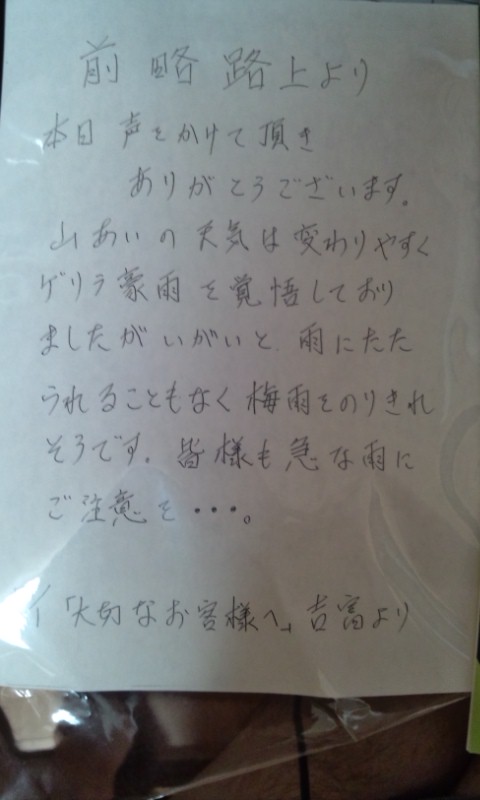 前略 路上より
本日 声をかけて頂き
ありがとうございます。
山あいの天気は変わりやすく
ゲリラ豪雨を覚悟しており
ましたがいがいと 雨にたた
られることもなく梅雨をのりきれ
そうです。皆様も急な雨に
ご注意を・・・。
「大切なお客様へ」吉富より